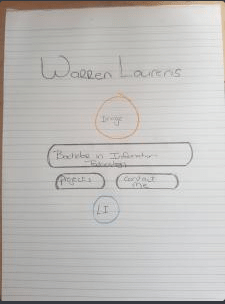 Warren Laurens
Image
Bachelor in Information
Projects
Contact
Me
LI